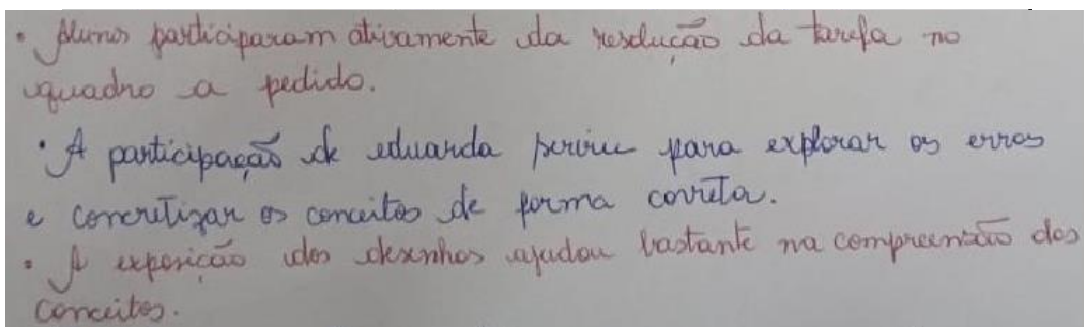 • Alunos participaram ativamente da resolução da tarefa no
quadro a pedido.
• A participação de eduarda serviu para explorar os erros
e concretizar os conceitos de forma correta.
• A exposição dos desenhos ajudou bastante na compreensão dos
conceitos.